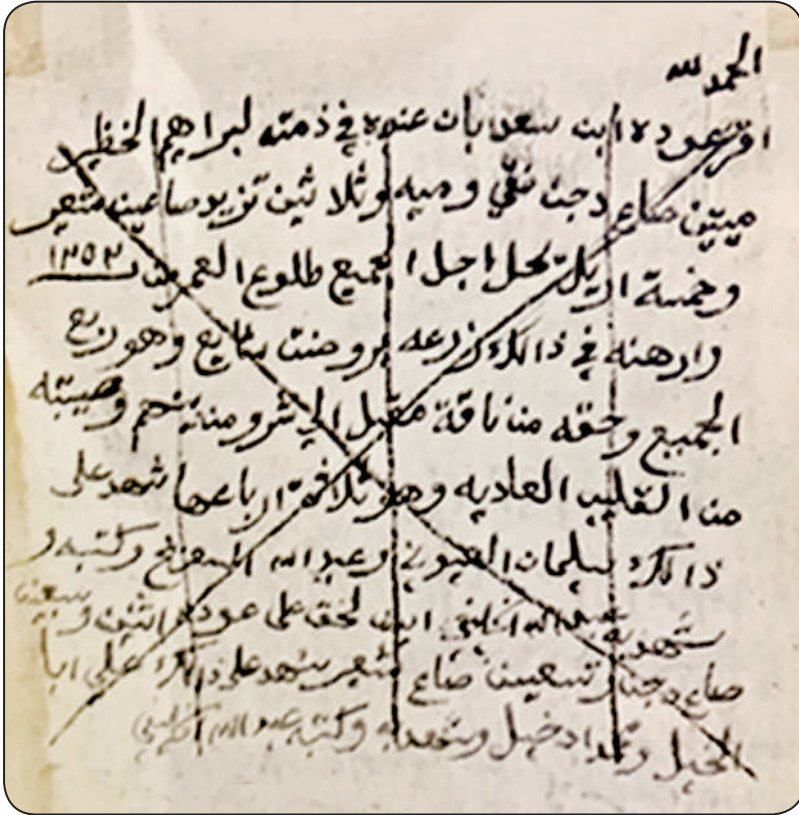 الحمد لله
اقر عوده ابن سعد بان عنده في ذمته لبراهيم الخظير
ميتين صاع دجن نقي وميه وثلاثين تزيد صاعين شعير
وخمسة اريل تحل اجل الجميع طلوع العمر من سنة ١٣٥٣
وارهنه في ذالك زرعه وهو ربع
الجميع وحقه من ناقة مقبل ومنتهم وصيبته
من القليب العاديه وهو ثلاثة ارباعها شهد على
ذالك سليمان العيوني وعبد الله وكتبه و
شهد به عبد الله ايظن لحق على عوده اثنين وسبعين
صاع دجن وتسعين صاع شعير شهد على ذالك علي ابا
الخيل ودخيل وشهد به وكتبه عبد الله